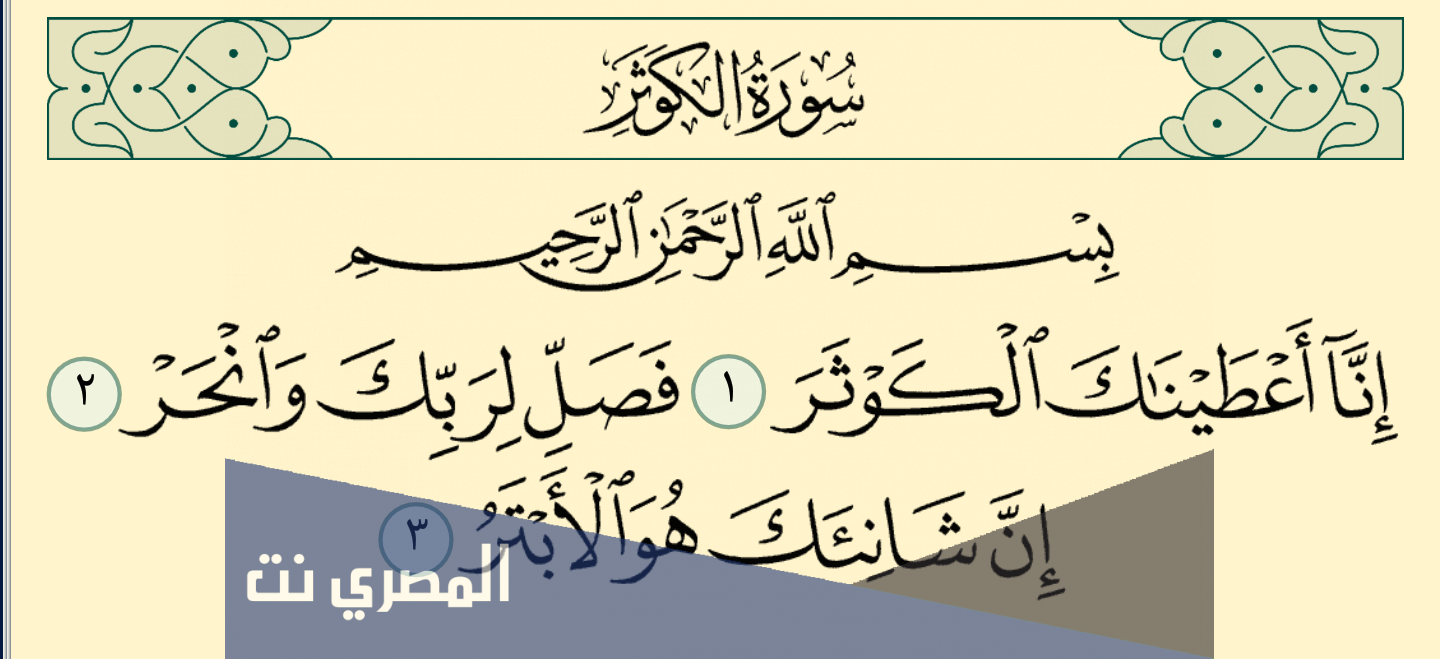 سُورَةُ الكَوْثَرِ
بِسْمِ ٱللَّهِ ٱلرَّحْمَٰنِ ٱلرَّحِيمِ
إِنَّآ أَعْطَيْنَٰكَ ٱلْكَوْثَرَ ١ فَصَلِّ لِرَبِّكَ وَٱنْحَرْ ٢
إِنَّ شَانِئَكَ هُوَ ٱلْأَبْتَرُ ٣
المصري نت